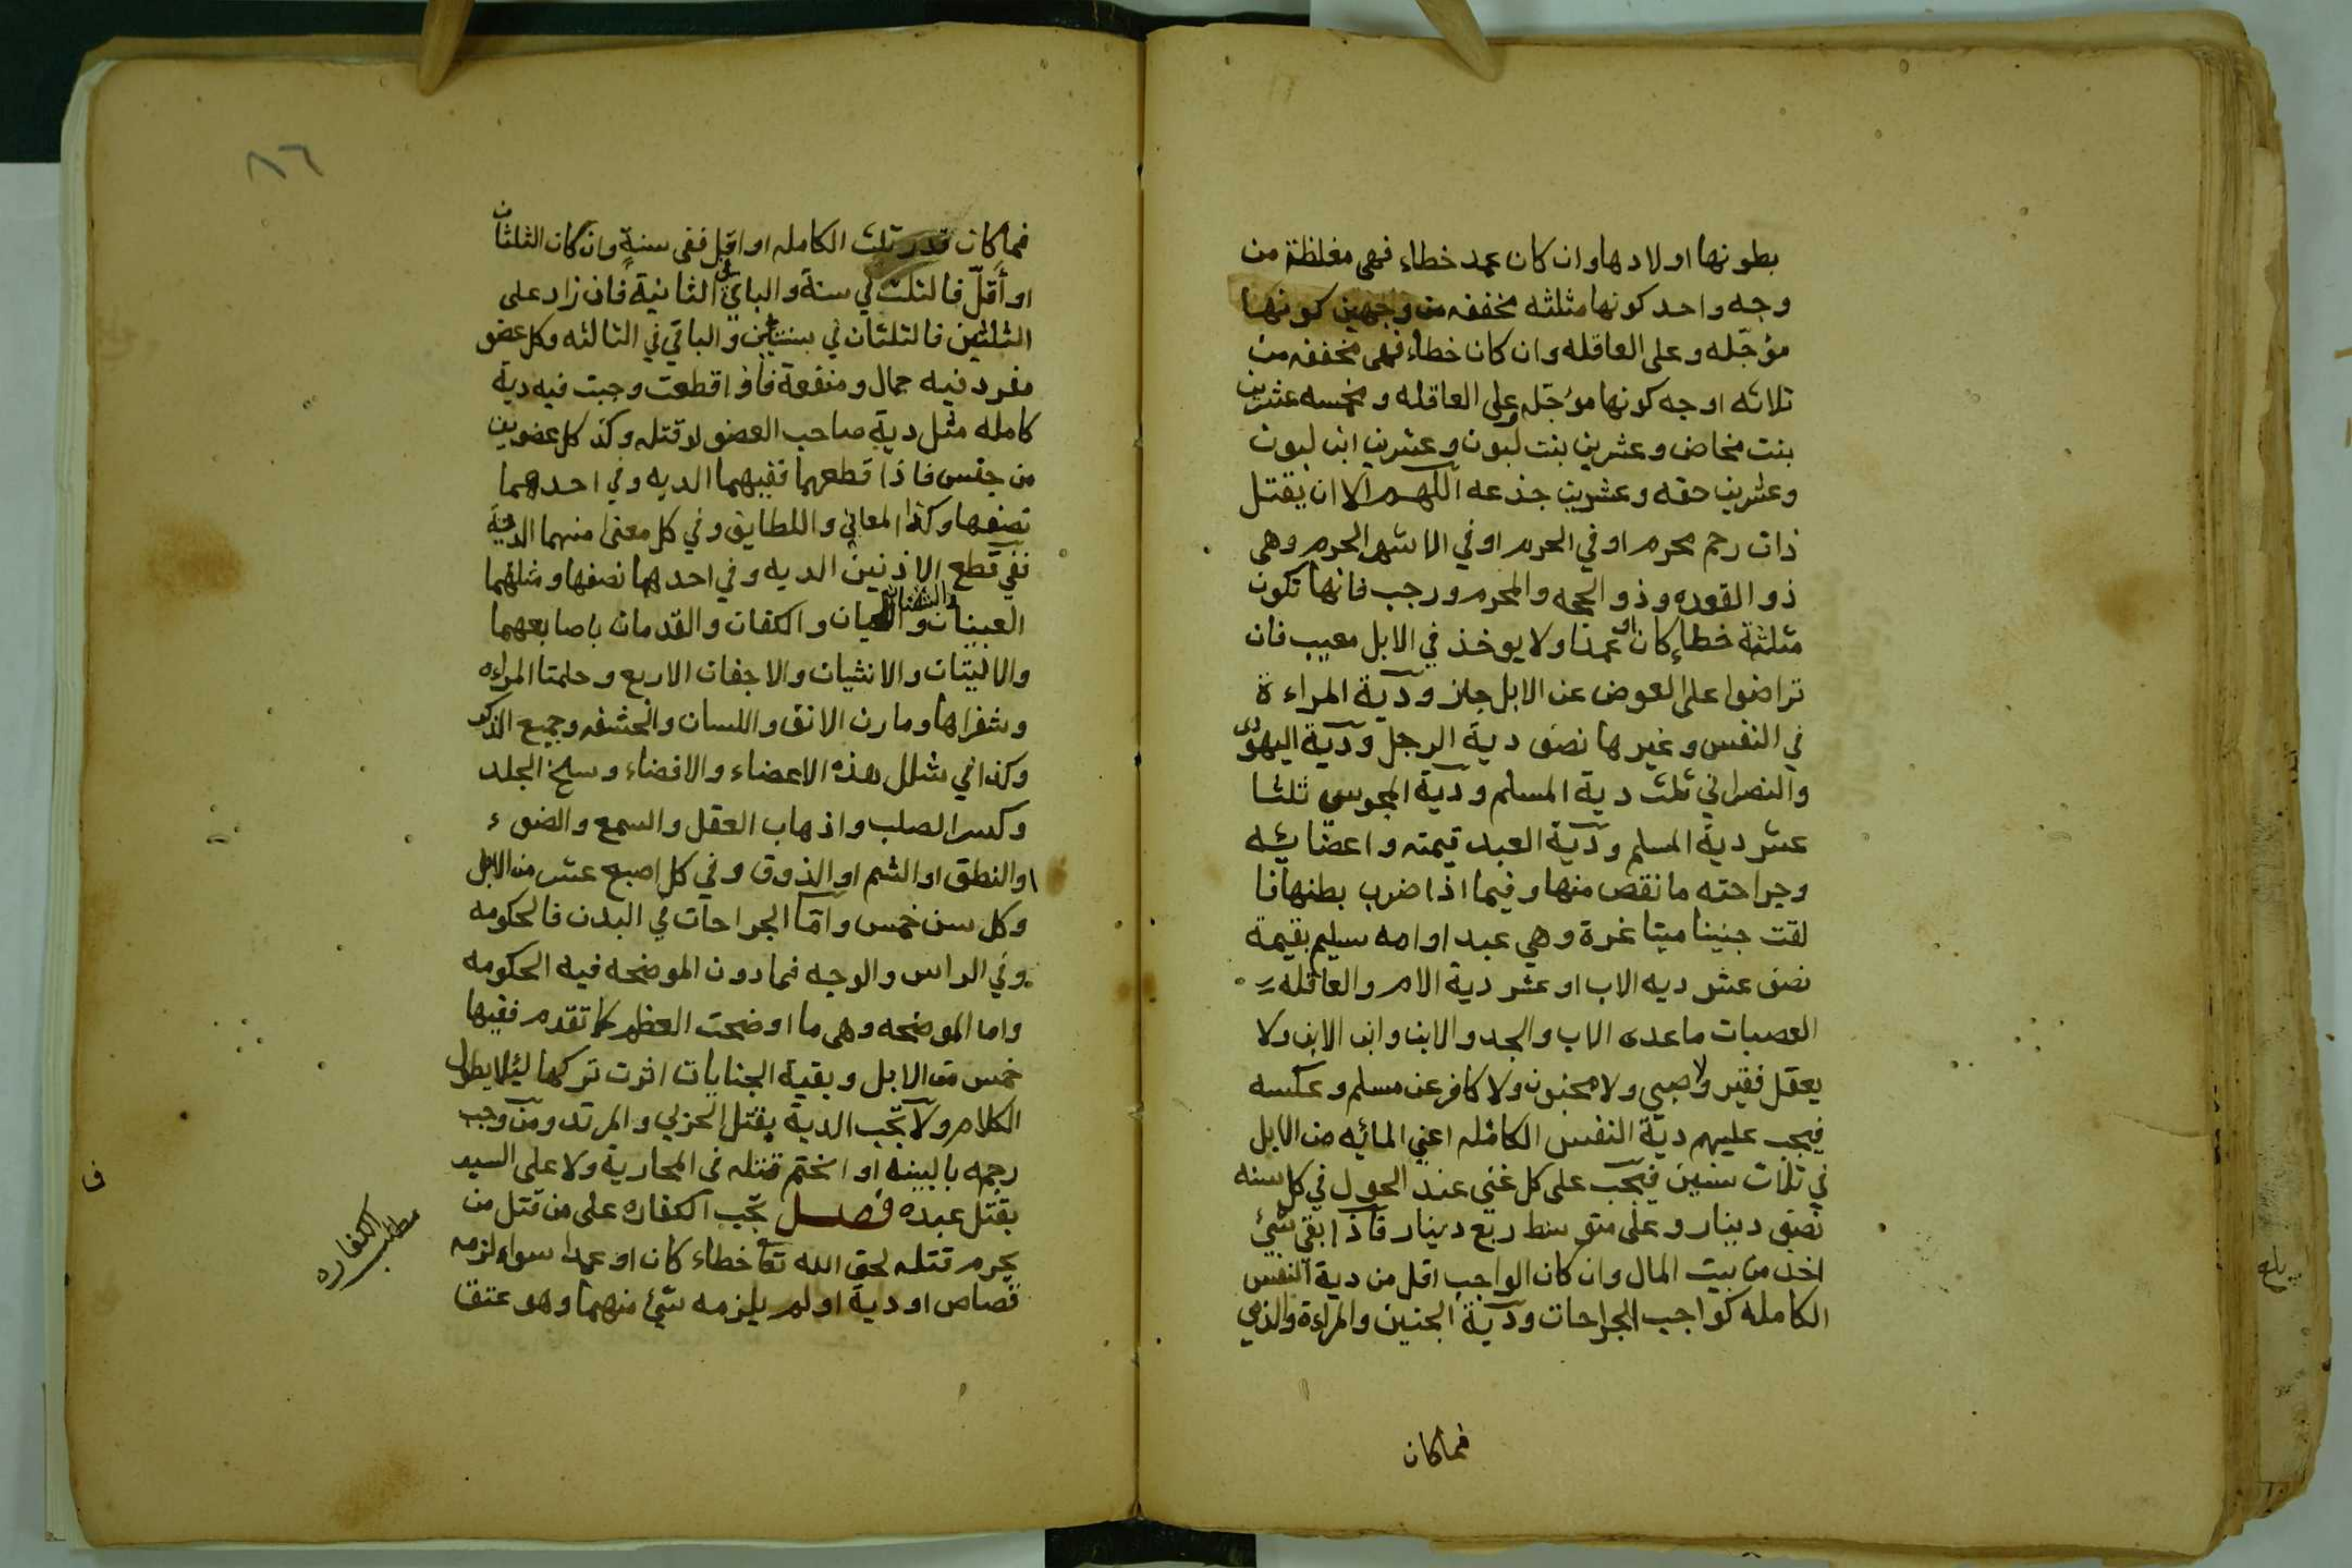 بطونها اولادها وان كان عمد خطاء فهى مغلظة من
وجه واحد كونها مثلثه مخففه من وجهين كونها
مؤجّله وعلى العاقله وان كان خطاء فهى مخففه من
ثلاثه اوجه كونها مؤجّله وعلى العاقله ومخمسه عشرين
بنت مخاض وعشرين بنت لبون وعشرين ابن لبون
وعشرين حقه وعشرين جذعه اللّهم الا ان يقتل
ذات رحم محرم او في الحرم او في الاشهر الحرم وهى
ذو القعده وذو الحجه والمحرم ورجب فانها تكون
مثلثة خطاءٍ كان او عمدا ولا يوخذ في الابل معيب فان
تراضوا على العوض عن الابل جاز ودية المراءة
في النفس وغيرها نصف دية الرجل ودية اليهودى
والنصراني ثلث دية المسلم ودية المجوسي ثلثا
عشر دية المسلم ودية العبد قيمته واعضايئه
وجراحته ما نقص منها وفيما اذا ضرب بطنها فا
لقت جنينا ميتا غرة وهي عبد او امه سليم بقيمة
نصف عشر ديه الاب او عشر دية الام والعاقله
العصبات ماعدى الاب والجد والابن وابن الابن ولا
يعقل فقير ولا صبي ولا مجنون ولا كافر عن مسلم وعكسه
فيجب عليهم ديّة النفس الكامله اعني المائه من الابل
في ثلاث سنين فيجب على كل غني عند الحول في كل سنه
نصف دينار وعلى متوسط ربع دينار فاذا بقي شئ
اخذ من بيت المال وان كان الواجب اقل من دية النفس
الكامله كواجب الجراحات ودية الجنين والمراءة والذمي
فما كان
٨٦
فما كان قدر ثلث الكامله او اقل ففى سنةٍ وان كان الثلثان
او أقلّ فالثلث في سنة والباقي في الثانية فان زاد على
الثلثين فالثلثان في سنتين والباقي في الثالثه وكل عضو
مفرد فيه جمال ومنفعة فاذا قطعت وجبت فيه دية
كامله مثل دية صاحب العضو لو قتله وكذ كل عضوين
من جنس فاذا قطعهما ففيهما الديه وفي احدهما
نصفها وكذا المعاني واللطايف وفي كل معنى منهما الدية
ففي قطع الاذنين الديه وفي احدهما نصفها ومثلهما
العينان والشفتان واللحيان والكفان والقدمان باصابعهما
والاليتان والانثيان والاجفان الاربع وحلمتا المراءه
وشفراها ومارن الانف واللسان والحشفه وجميع الذكر
وكذا في شلل هذه الاعضاء والافضاء وسلخ الجلد
وكسر الصلب واذهاب العقل والسمع والضوء
او النطق او الشم او الذوق وفي كل اصبع عشر من الابل
وكل سن خمس وامّا الجراحات في البدن فالحكومه
وفي الراس والوجه فما دون الموضحه فيه الحكومه
واما الموضحه وهى ما اوضحت العظم كما تقدم ففيها
خمس من الابل وبقية الجنايات اثرت تركها ليئلا يطول
الكلام ولا تجب الدية بقتل الحربي والمرتد ومن وجب
رجمه بالبينة او انحتم قتله فى المحاربة ولا على السيد
بقتل عبده فصل تجب الكفاره على من قتل من
يحرم قتله لحق الله تعا خطاء كان او عمدا سواء لزمه
قصاص او دية او لم يلزمه شئ منهما وهو عتق
مطلب الكفاره
ف
بلغ